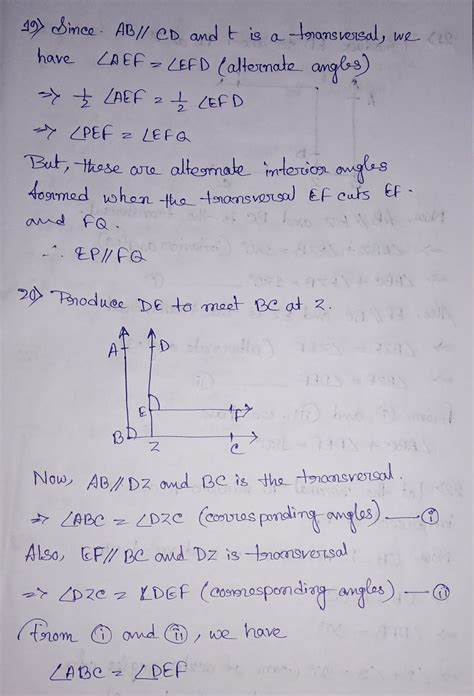 19) Since. AB // CD and t is a transversal, we
have ∠AEF = ∠EFD (alternate angles)
⇒ 1/2 ∠AEF = 1/2 ∠EFD
⇒ ∠PEF = ∠EFQ
But, these are alternate interior angles
formed when the transversal EF cuts EF.
and FQ.
∴ EP // FQ
20) Produce DE to meet BC at Z.
A D
E F
B Z C
Now, AB // DZ and BC is the transversal.
⇒ ∠ABC = ∠DZC (corresponding angles) — (i)
Also, EF // BC and DZ is transversal
⇒ ∠DZC = ∠DEF (corresponding angles) — (ii)
From (i) and (ii), we have
∠ABC = ∠DEF